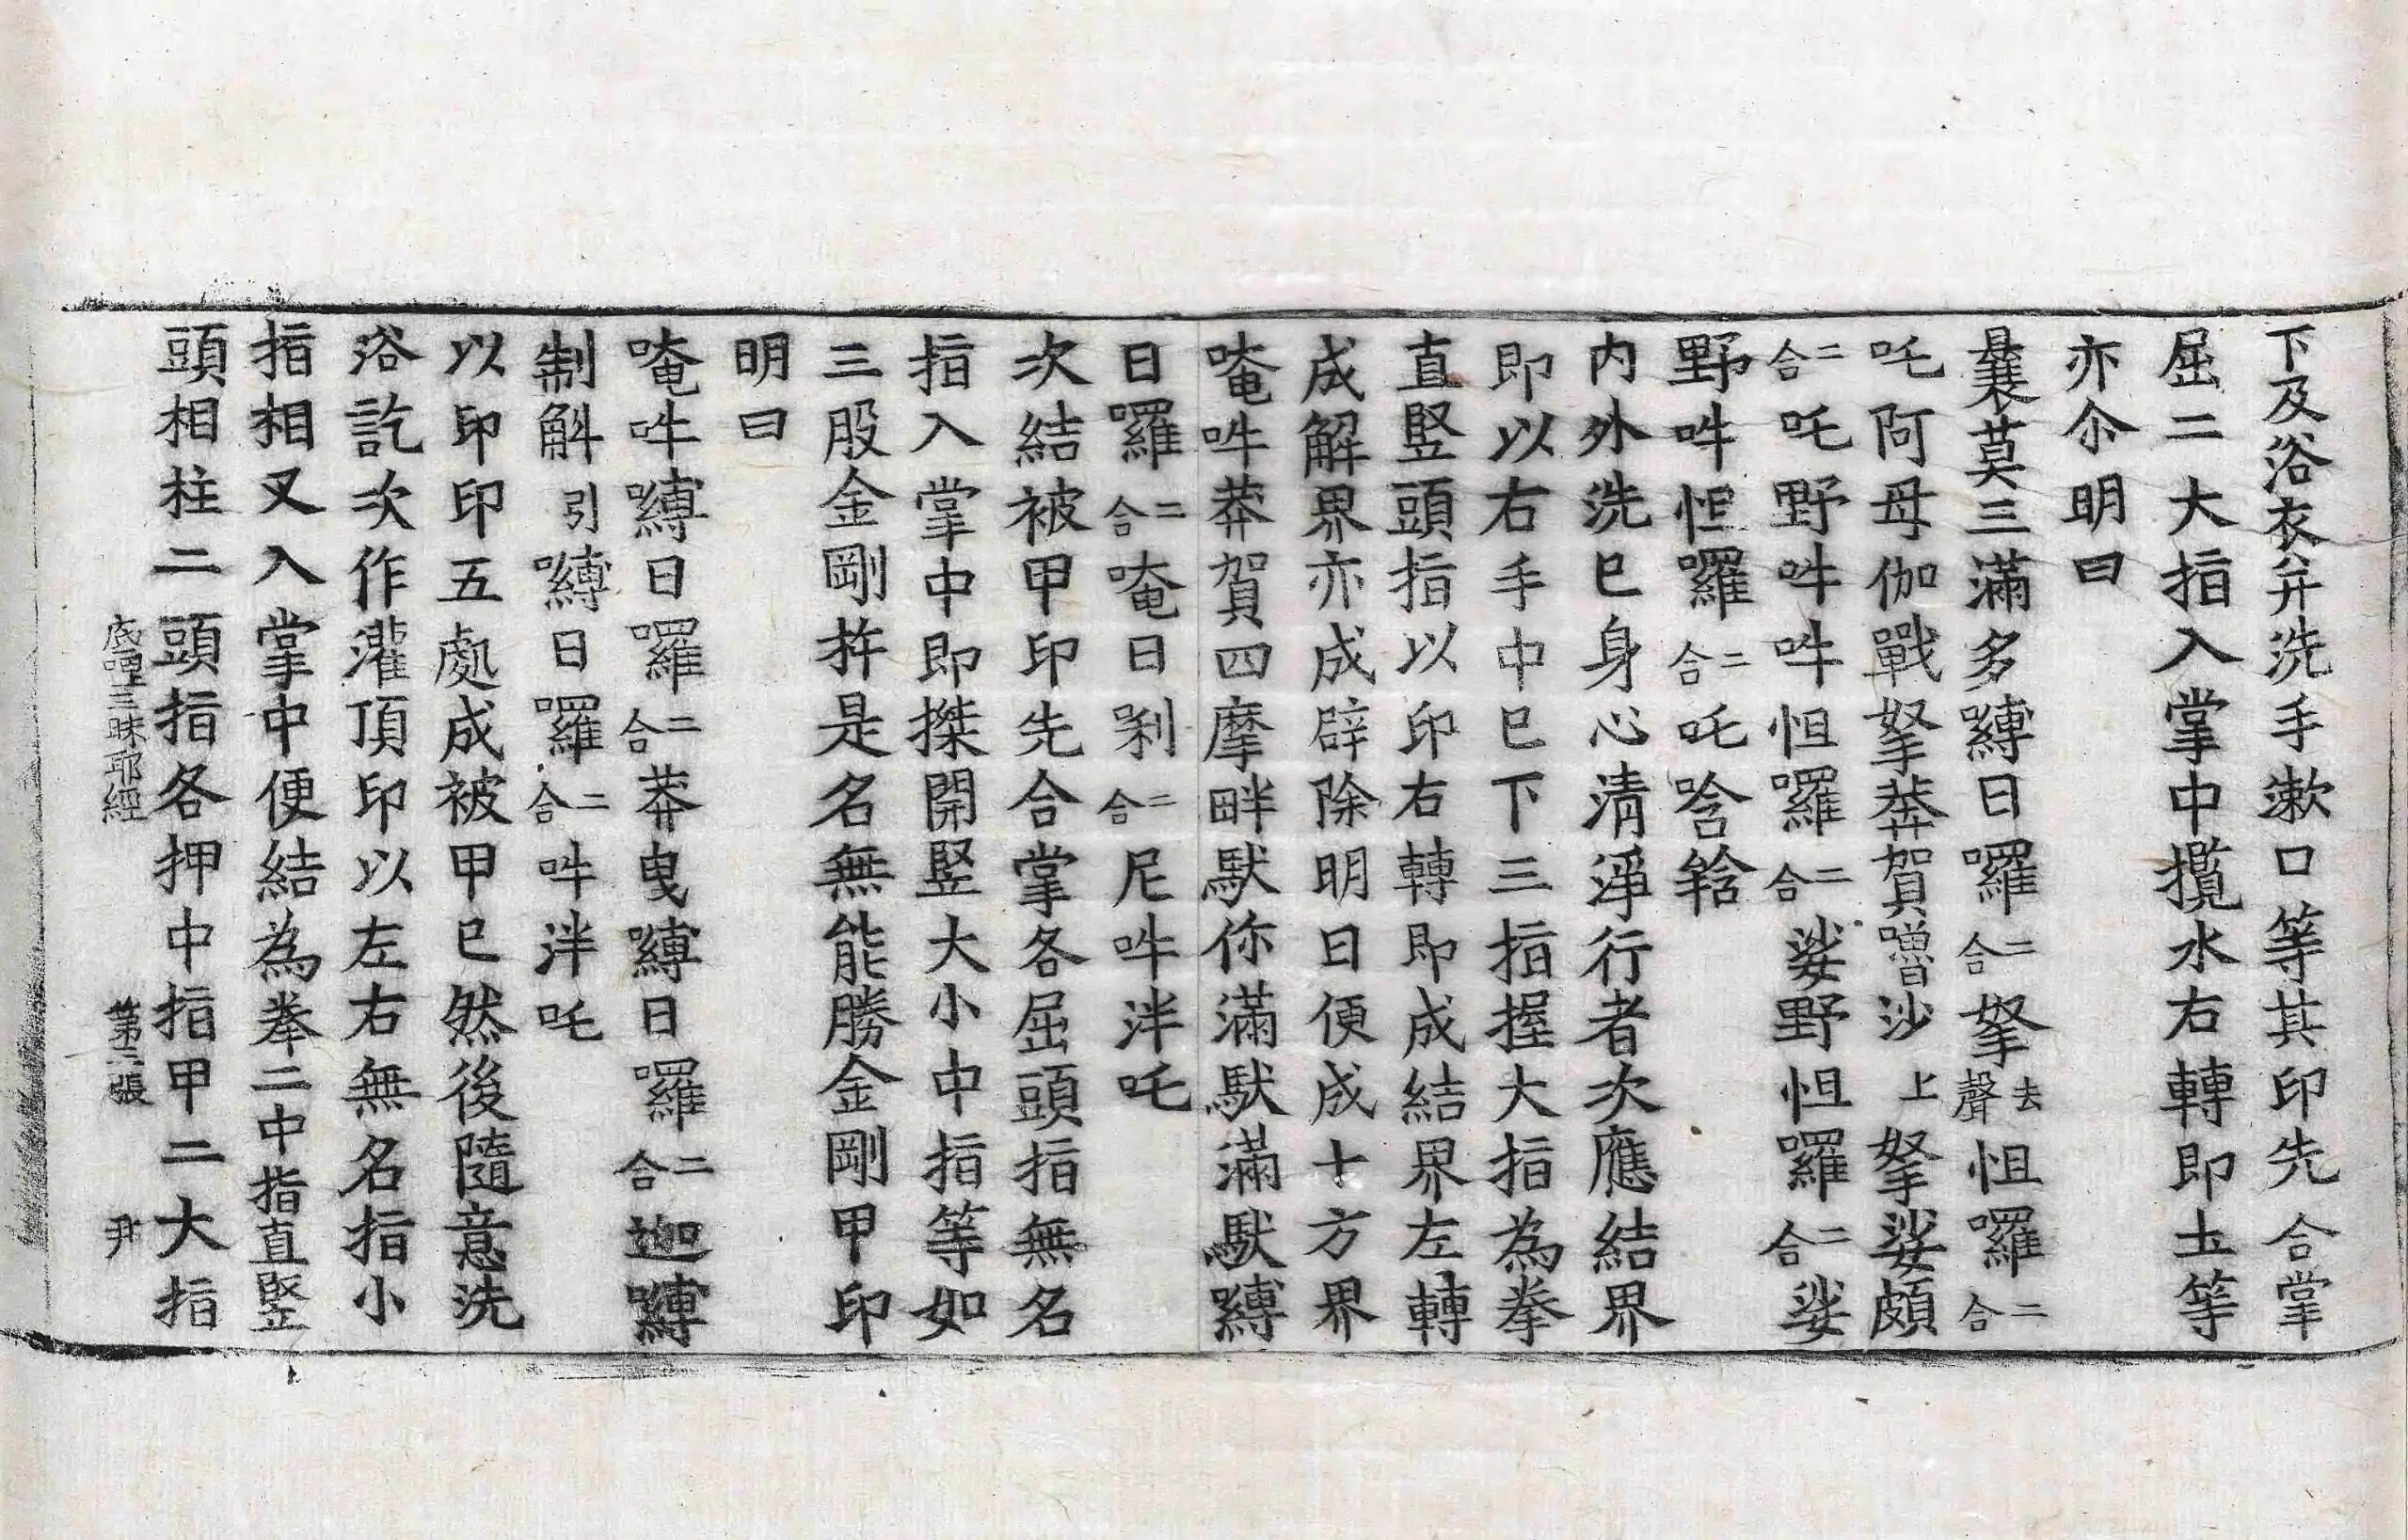 下及浴衣并洗手漱口等其印先合掌
屈二大指入掌中攪水右轉即土等
亦尒明曰
曩莫三滿多嚩日囉二合拏去聲怛囉二合
吒阿母伽戰拏莽賀嚕沙上拏娑頗
二合吒野吽吽怛囉二合娑野怛囉二合娑
野吽怛囉二合吒唅𤚥
内外洗已身心清淨行者次應結界
即以右手中已下三指握大指為拳
直竪頭指以印右轉即成結界左轉
成解界亦成辟除明曰便成十方界
唵吽莽賀四摩畔馱你滿馱滿馱嚩
日囉二合唵日剎二合尼吽泮吒
次結被甲印先合掌各屈頭指無名
指入掌中即搩開竪大小中指等如
三股金剛杵是名無能勝金剛甲印
明曰
唵吽嚩日囉二合莽曳嚩日囉二合迦嚩
制斛引嚩日囉二合吽泮吒
以印印五處成被甲已然後隨意洗
浴訖次作灌頂印以左右無名指小
指相叉入掌中便結為拳二中指直竪
頭相柱二頭指各押中指甲二大指
底哩三昧耶經 第三張 尹